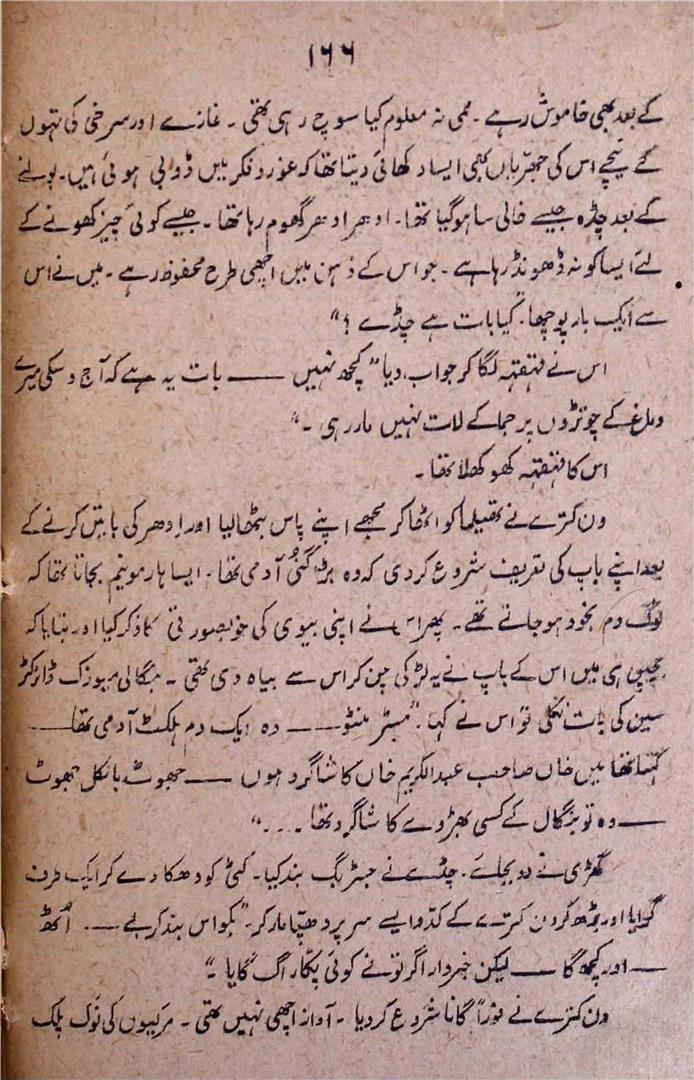 ۱۶۶
کے بعد بھی خاموش رہے ۔ ممی نہ معلوم کیا سوچ رہی تھی ۔ غازے اور سرخی کی تہوں
کے نیچے اس کی جھریاں کبھی ایسا دکھائی دیتا تھا کہ غور و فکر میں ڈوبی ہوئی ہیں۔ پولے نے
کے بعد چڈہ جیسے خالی سا ہو گیا تھا۔ ادھر ادھر گھوم رہا تھا ۔ جیسے کوئی چیز کھونے کے
لئے ایسا کونہ ڈھونڈ رہا ہے ۔ جو اس کے ذہن میں اچھی طرح محفوظ رہے ۔ میں نے اس
سے ایک بار پوچھا۔ کیا بات ہے چڈے ؟"
اس نے قہقہہ لگا کر جواب دیا "کچھ نہیں —— بات یہ ہے کہ آج وسکی میرے
دماغ کے چوتڑوں پر جما کے لات نہیں مار رہی ۔"
اس کا قہقہہ کھوکھلا تھا ۔
ون کترے نے تھیلما کو اٹھا کر مجھے اپنے پاس بٹھا لیا اور ادھر کی باتیں کرنے کے
بعد اپنے باپ کی تعریف شروع کر دی کہ وہ بڑا گنی آدمی تھا۔ ایسا ہارمونیم بجاتا تھا کہ
لوگ دم بخود ہو جاتے تھے ۔ پھر اس نے اپنی بیوی کی خوبصورتی کا ذکر کیا اور بتایا کہ
بچپن ہی میں اس کے باپ نے یہ لڑکی چن کر اس سے بیاہ دی تھی ۔ بنگالی میوزک ڈائرکٹر
سین کی بات نکلی تو اس نے کہا۔ "مسٹر منٹو —— وہ ایک دم ہلکٹ آدمی تھا ——
کہتا تھا میں خاں صاحب عبدالکریم خاں کا شاگرد ہوں —— جھوٹ بالکل جھوٹ
—— وہ تو بنگال کے کسی بھڑوے کا شاگرد تھا ۔۔۔"
گھڑی نے دو بجائے ۔ چڈے نے جٹر بگ بند کیا۔ کٹی کو دھکا دے کر ایک طرف
گرایا اور بڑھ کر ون کترے کے کدو ایسے سر پر دھپا مار کر۔ "بکواس بند کر بے —— اُٹھ
—— اور کچھ گا —— لیکن خبردار اگر تو نے کوئی پکا راگ گایا ۔"
ون کترے نے فوراً گانا شروع کر دیا ۔ آواز اچھی نہیں تھی ۔ مرکیوں کی نوک پلک